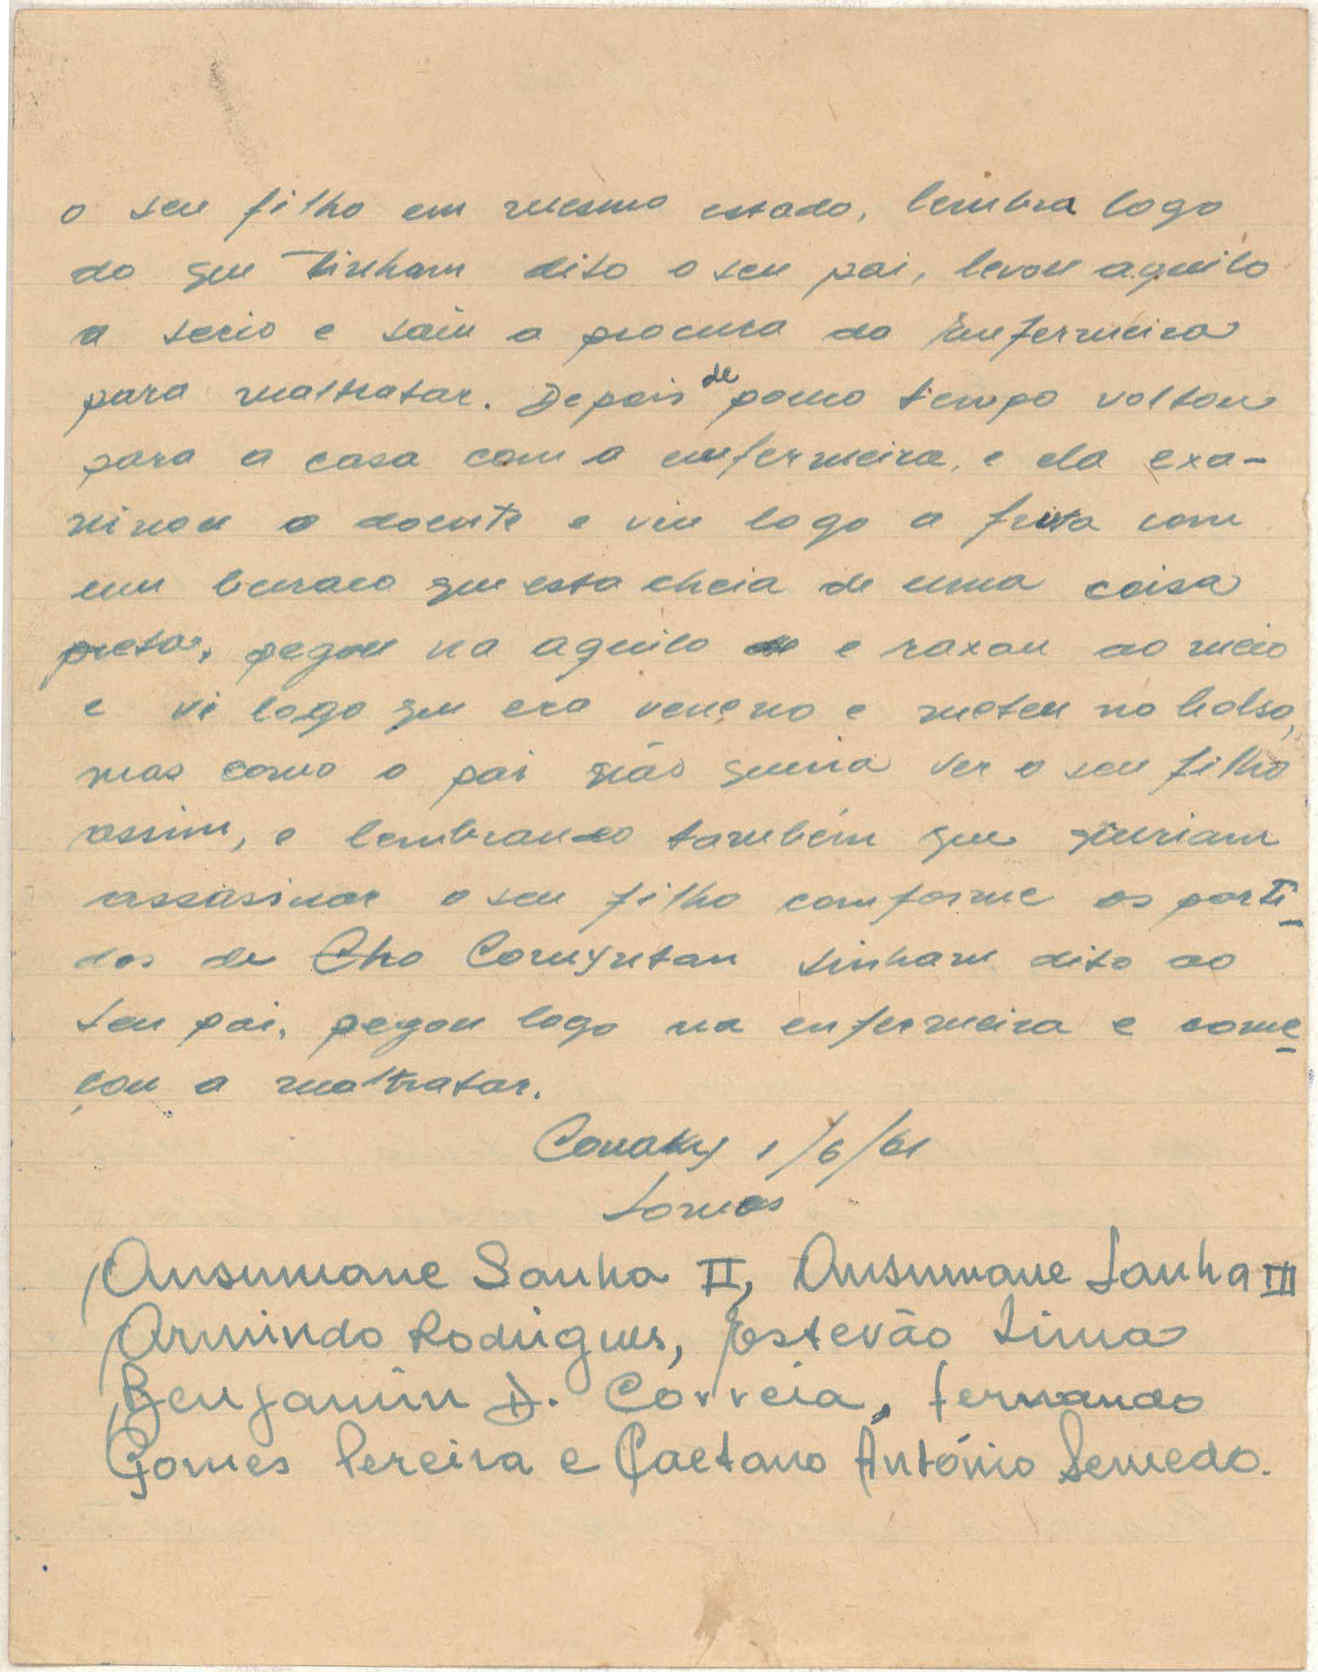 o seu filho em mesmo estado, lembra logo
do que tinham dito o seu pai, levou aquilo
a serio e saiu a procura da enfermeira
para maltratar. Depois de pouco tempo voltou
para a casa com a enfermeira, e ela exa-
minou o doente e viu logo a fruta com
um buraco que esta cheia de uma coisa
preta, pegou na aquilo e raxou ao meio
e vi logo que era veneno e meteu no bolso,
mas como o pai não queria ver o seu filho
assim, e lembrando também que queriam
assasinar o seu filho comforme os parti-
dos de Cho tinham dito ao
seu pai, pegou logo na enfermeira e come-
çou a maltratar.
Conakry 1/6/61
Somos
Ansumane Sanha II, Ansumane Sanha III
Armindo Rodrigues, Estevão Lima
Benjamim D. Correia, Fernando
Gomes Pereira e Caetano António Semedo.